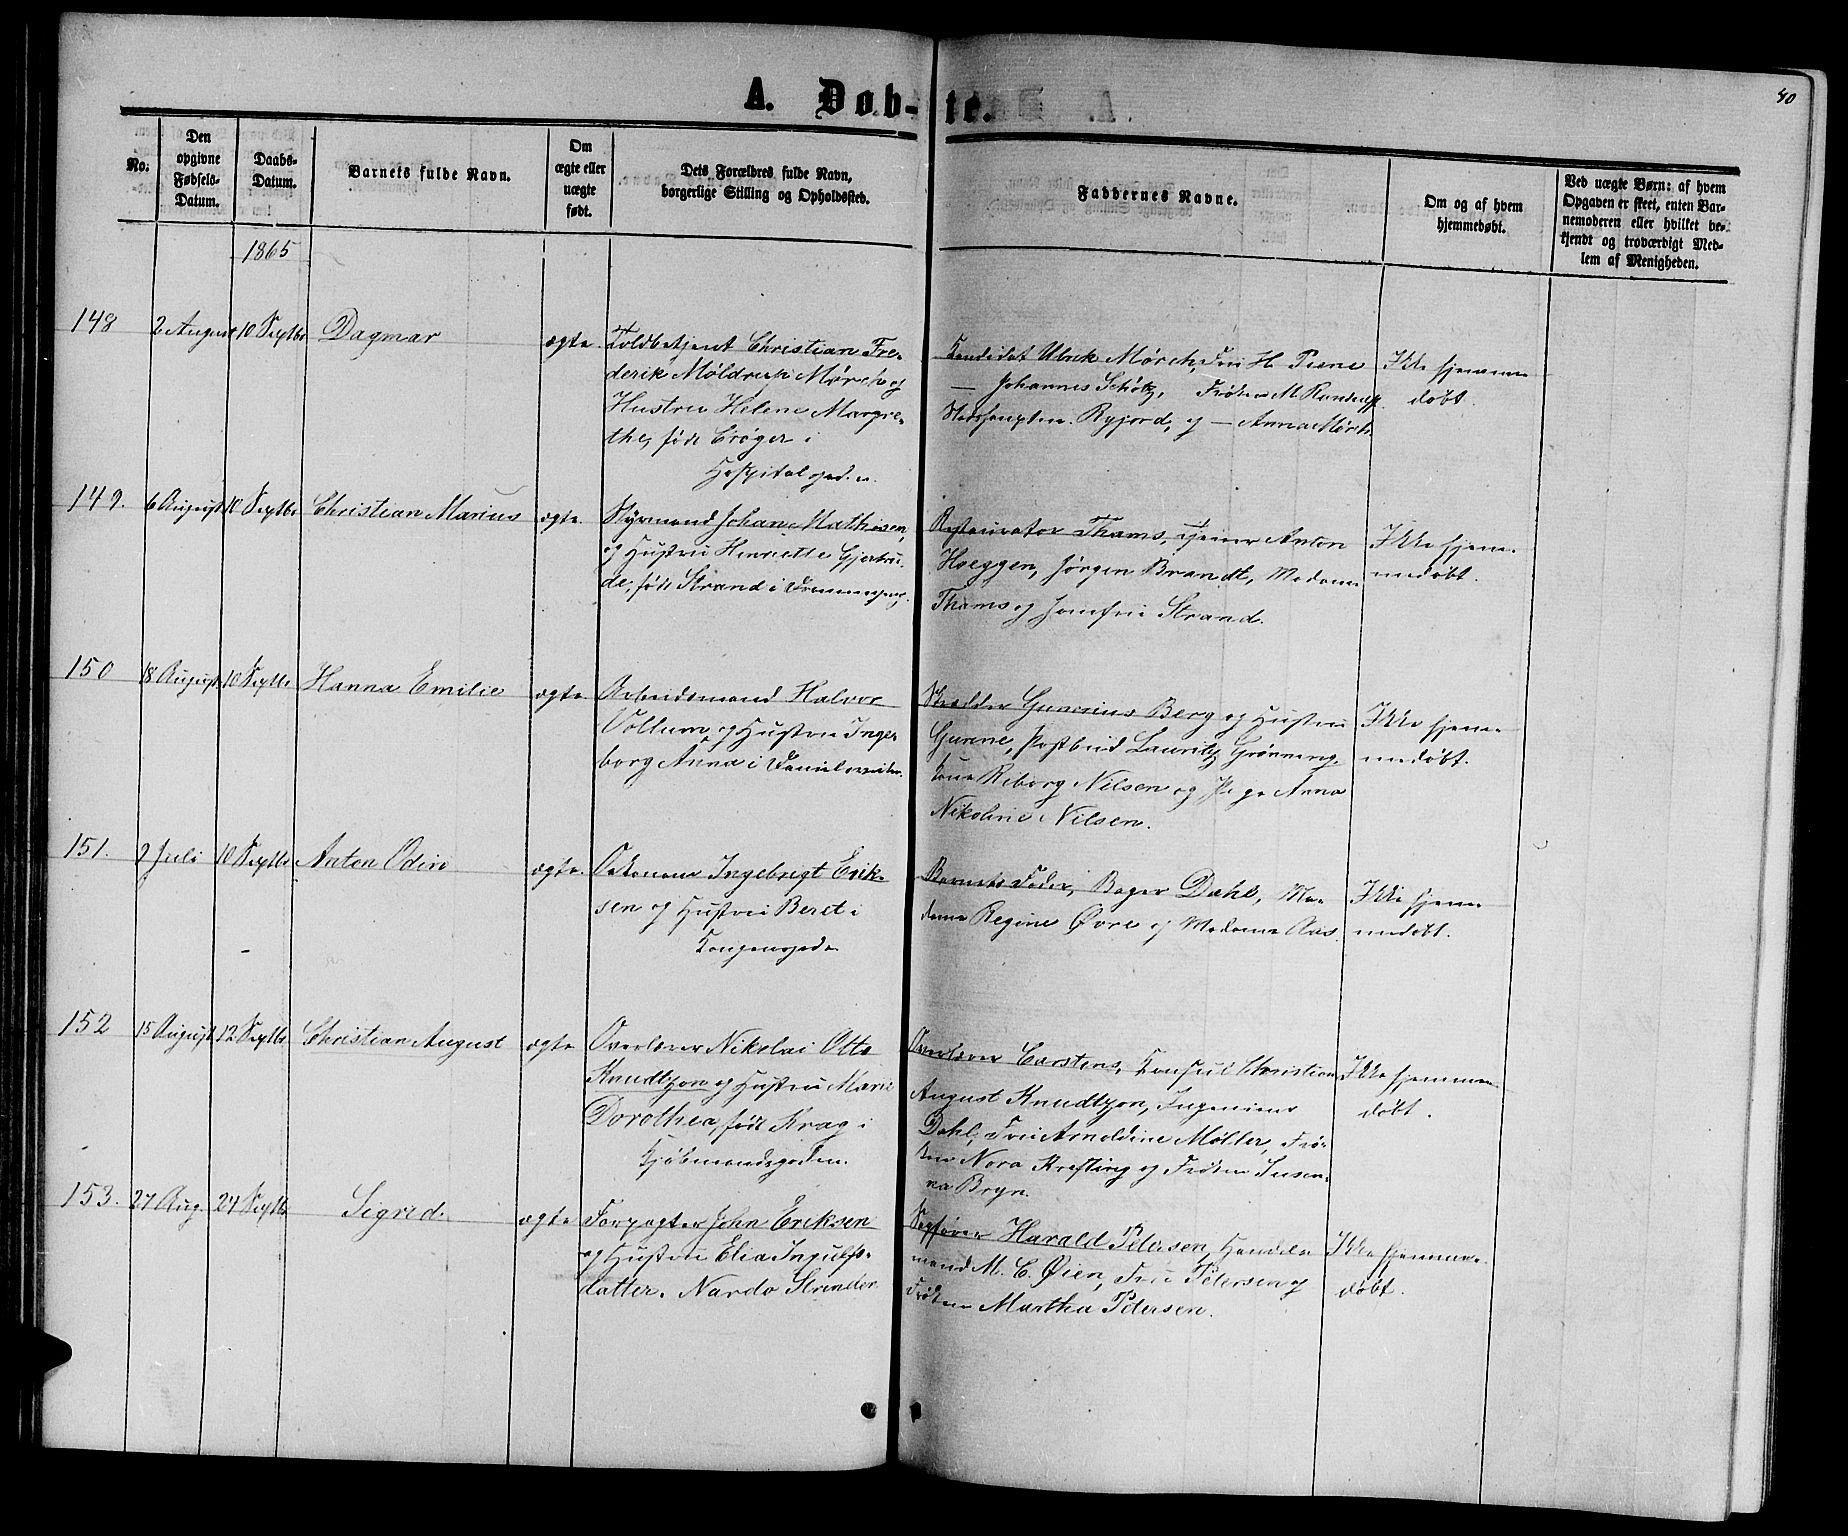 40
A. Døb-te.
No.
Den
opgivne
Fødsels-
Datum.
Daabs-
Datum.
Barnets fulde Navn.
Om
ægte eller
uægte
født.
Dets Forældres fulde Navn,
borgerlige Stilling og Opholdssted.
Faddernes Navne.
Om og af hvem
hjemmedøbt.
Ved uægte Børn: af hvem
Opgaven er skeet, enten Bar-
nemoderen eller hvilket be-
kjendt og troværdigt Med-
lem af Menigheden.
1865
148 2 August 10 Septbr Dagmar ægte
Toldbetjent Christian Fre-
derik Møldrick Mørch og
Hustru Helene Margre-
the, født Crøger i
Hospitalsgaden.
Kandidat Ulrik Mørch, Fru H. Piene
— Johannes Schøtz, Frøken M.
Ryjord, og — Anna Mørch
Ikke hjemme-
døbt.
149. 6 August 10 Septbr Christian Marius ægte.
Styrmand Johan Mathesen,
og Hustru Henriette Gjertru-
de, født Strand i
Restaurator Thams, Tjener Anton
Hoeggen, Jørgen Brandt, Madame
Thams og Jomfru Strand.
Ikke hjem-
medøbt.
150 18 August 10 Septbr Hanna Emilie ægte
Arbeidsmand Halvor
Vollum og Hustru Inge-
borg Anna i
Skrædder Gunerius Berg og Hustru
Gurine, Postbud Lauritz Grønning
Kone Riborg Nilsen og Pige Anna
Nikoline Nilsen.
Ikke hjem-
medøbt.
151. 9 Juli 10 Septbr Anton Odin ægte.
Oekonom Ingebrigt Erik-
sen og Hustru Beret i
Kongensgade
Barnets Fader, Bager Dahl, Ma-
dame Regine Øvre og Madame Aas.
Ikke hjem-
medøbt.
152 15 August 12 Septbr Christian August ægte
Overlærer Nikolai Otto
Knudtzon og Hustru Marie
Dorothea, født Krag i
Kjøbmandsgaden.
Overlærer Carstens, Konsul Christian
August Knudtzon, Ingeniør
Dahl, Frue Arnoldine Møller, Frø-
ken Nora Krefting og Frøken Susan-
na Bryn.
Ikke hjemme-
døbt.
153. 27 Aug. 24 Septbr Sigrid. ægte
Forpagter John Eriksen
og Hustru Elia Ingulfs-
datter. Nardo Strinden
Sagfører Harald Petersen, Handels-
mand M. C. Øien, Frue Petersen og
Frøken Martha Petersen.
Ikke hjemme-
døbt.